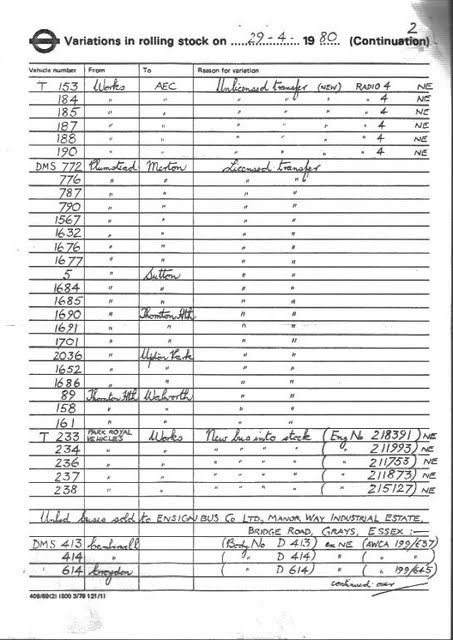 2
Variations in rolling stock on 29-4- 1980 (Continuation)
Vehicle number From To Reason for variation
T 153 Works AEC Unlicensed transfer (NEW) RADIO 4 NE
184 " " " " " " 4 NE
185 " " " " " " 4 NE
187 " " " " " " 4 NE
188 " " " " " " 4 NE
190 " " " " " " 4 NE
DMS 772 Plumstead Merton Licensed transfer
776 " " " "
787 " " " "
790 " " " "
1567 " " " "
1632 " " " "
1676 " " " "
1677 " " " "
5 " Sutton " "
1684 " " " "
1685 " " " "
1690 " Thornton Hth " "
1691 " " " "
1701 " " " "
2036 " Upton Park " "
1652 " " " "
1686 " " " "
89 Thornton Hth Walworth " "
158 " " " "
161 " " " "
T 233 PARK ROYAL VEHICLES Works New bus into stock (Eng No 218391) NE
234 " " " " " " ( " 211993) NE
236 " " " " " " ( " 211753) NE
237 " " " " " " ( " 211873) NE
238 " " " " " " ( " 215127) NE
Unlcd buses sold to ENSIGN BUS Co LTD, MANOR WAY INDUSTRIAL ESTATE,
BRIDGE ROAD, GRAYS, ESSEX :—
DMS 413 Camberwell (Body No D 413) ex NE (AWCA 199/637)
414 " ( " D 414) " ( " " )
" 614 Croydon ( " D 614) " ( " 199/645)
continued over
408/69(2) (600 3/79 121/1)